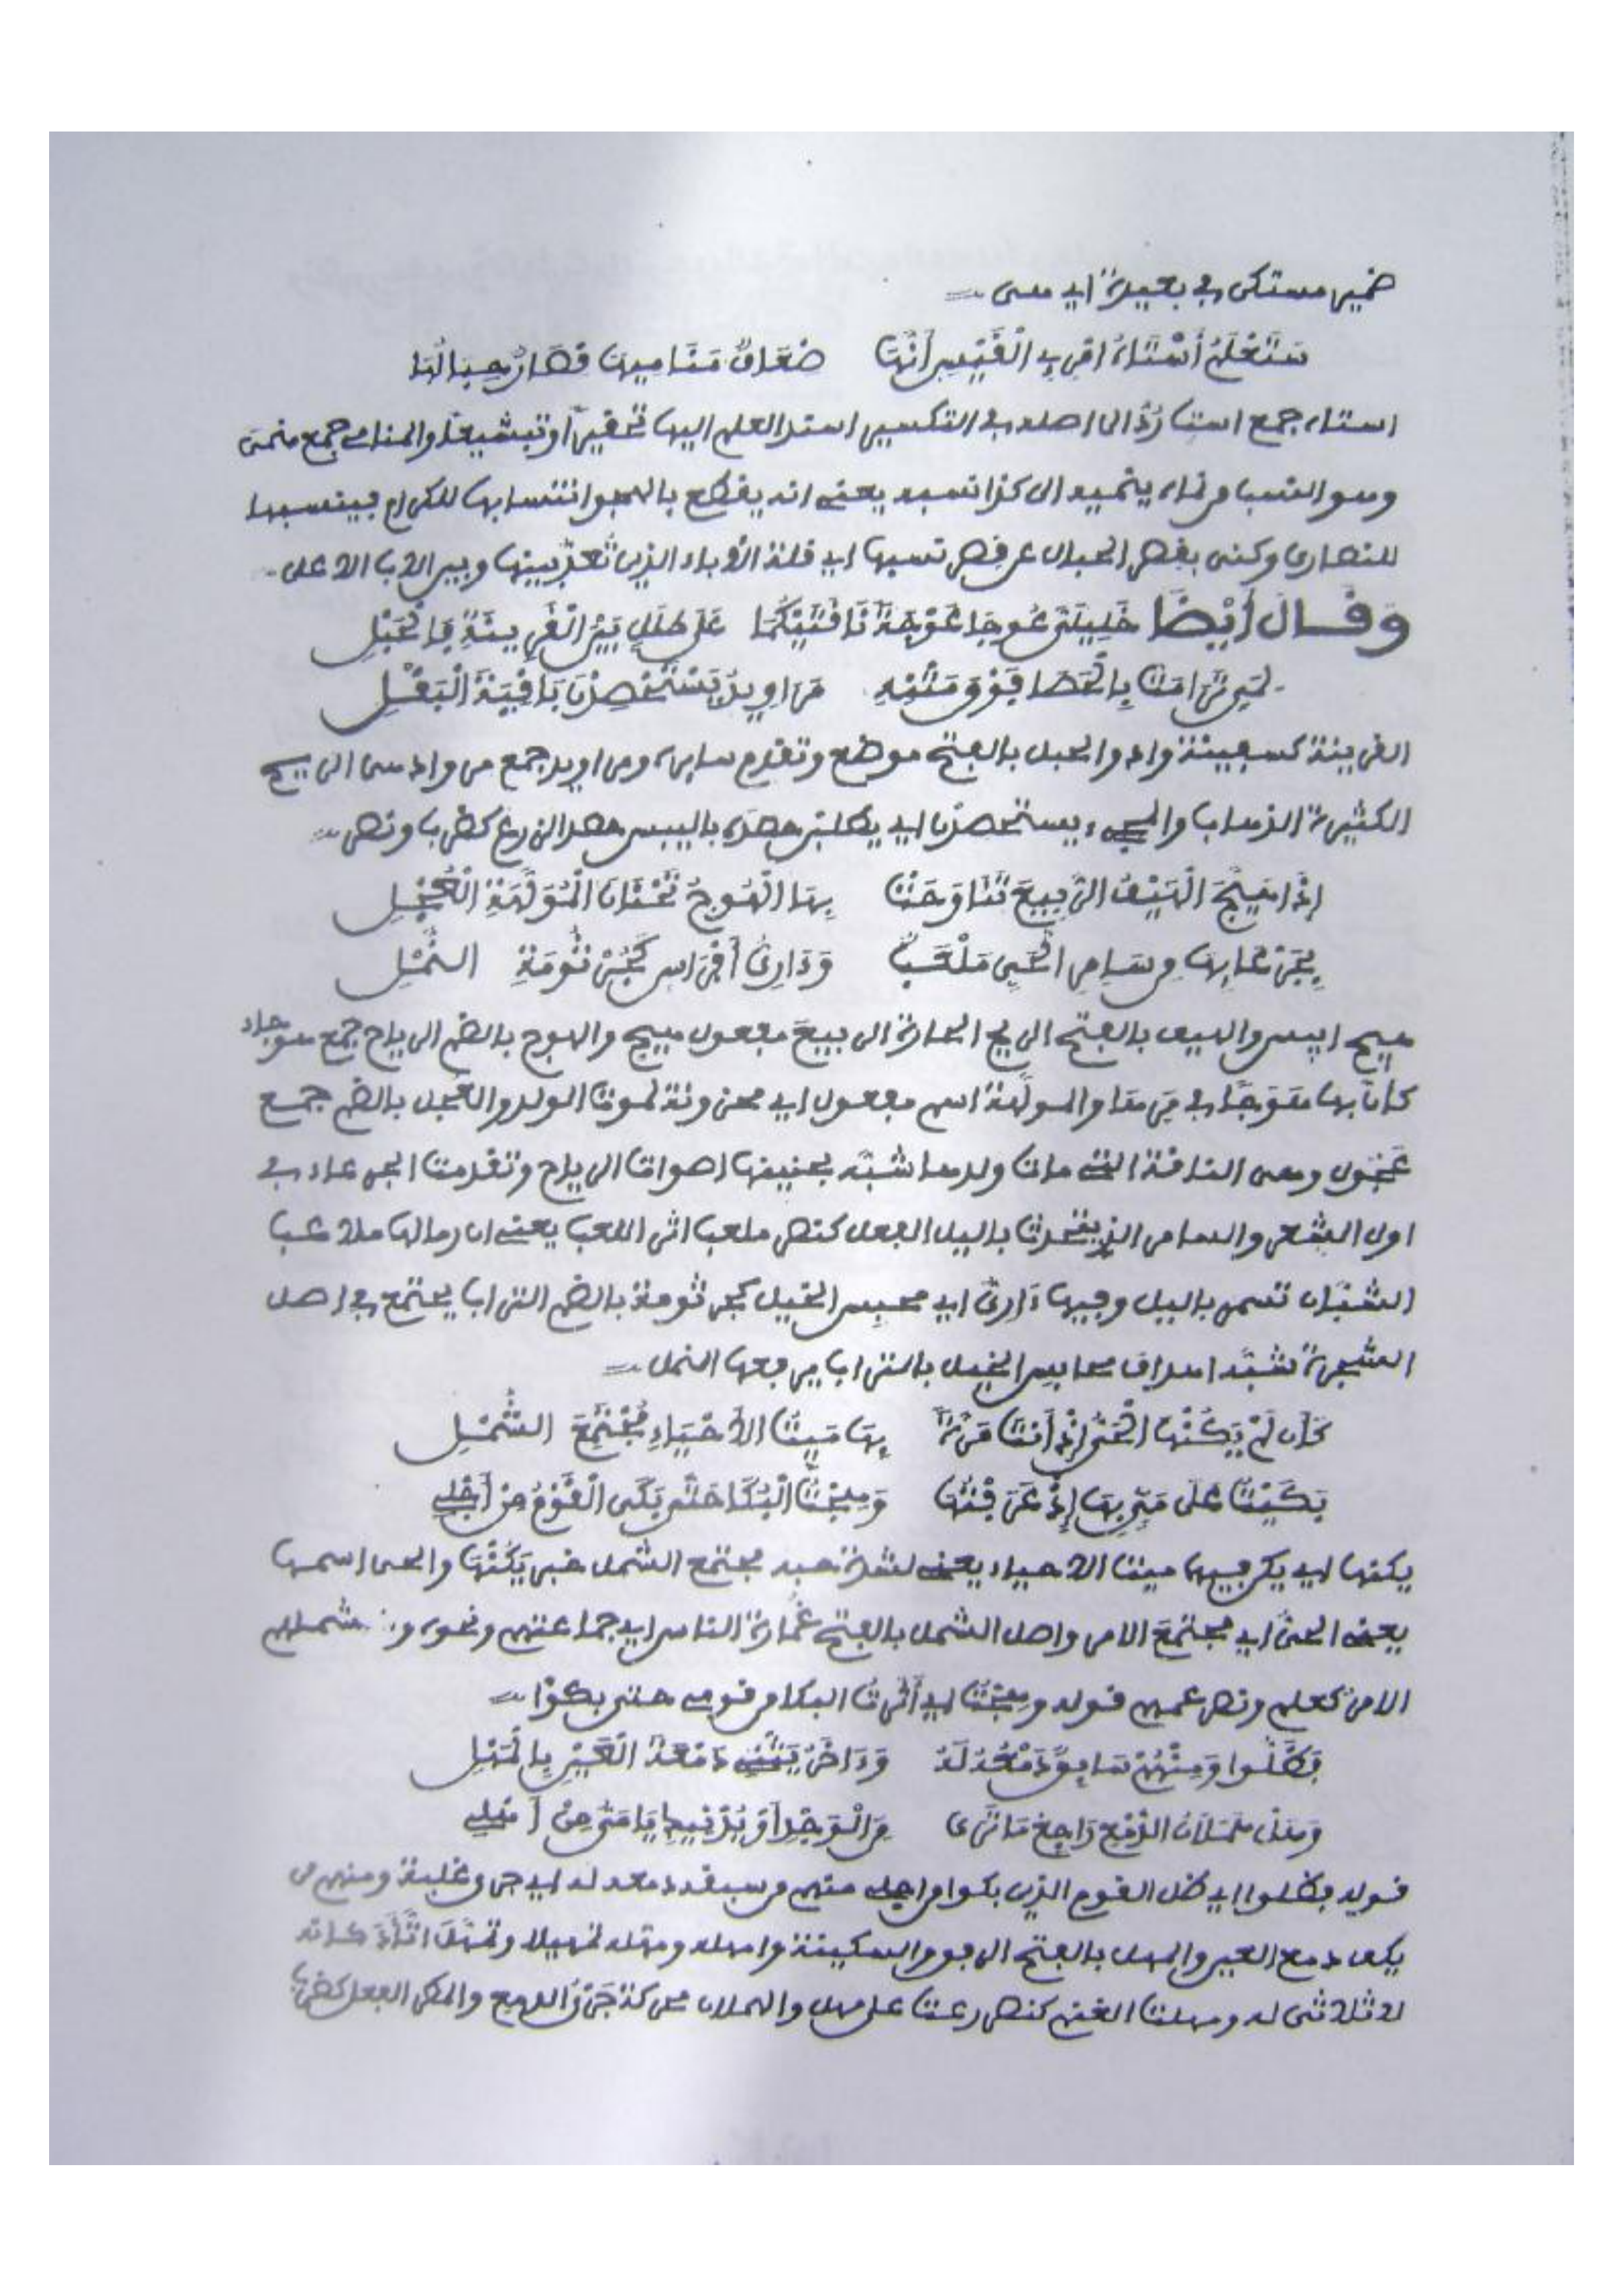 ضمير مستكن في بعيدة أي هي
ستعلم أستاه امرئ القيس أنها ضعاف مناميها قصار حبالها
استاه جمع است رُدّ الى اصله في التكسير اسند العلم اليها تحقيرا وتبشيعا والمنامي جمع منمى
وهو النسب من نماه ينميه الى كذا نسبه يعني انه يقطع بالهجو انتسابها للكرام فينسبها
للنصارى وكنى بقصر الحبال عن قصر نسبها اي قلة الأباء الذين تُعَدّ بينها وبين الاب الاعلى
وَقَالَ أَيْضًا خَلِيلَيَّ عُوجَا عَوْجَةً نَاقَتَيْكُمَا عَلَى طَلَلٍ بَيْنَ الْقَرِينَةِ فَالْحَبْلِ
لمن ترامت بالحصا فوق متنه مراويد يستحصدن باقية البقل
القرينة كسفينة واد والحبل بالفتح موضع وتقدم سابره ومراويد جمع مرواد هي الريح
الكثيرة الذهاب والمجيء ويستحصدن اي يطلبن حصده باليبس حصد الزرع كضرب ونصر
إِذَا هَيَّجَ الْهَيْفُ الرَّبِيعَ تَنَاوَحَتْ بِهَا الْهُوجُ تَحْنَانَ الْمُوَلَّهَةِ الْعُجْلِ
بجرعائها من سامر الحي ملعب وَدَارِيُّ أَفْرَاسٍ كَجُرْثُومَةِ النَّمْلِ
هيج ايبس والهيف بالفتح الريح الحارة الربيع مفعول هيج والهوج بالضم الرياح جمع هوجاء
كأن بها هَوَجًا في مرها والمولّهة اسم مفعول اي محزونة لموت الولد والعُجل بالضم جمع
عَجُول وهي الناقة التي مات ولدها شبّه بحنينها اصوات الرياح وتقدمت الجرعاء في
اول الشعر والسامر الذي يتحدث باليل الفعل كنصر ملعب اثر اللعب يعني ان رمالها ملاعب
الشبّان تسمر باليل وفيها دَارِيُّ اي محبس الخيل كجرثومة بالضم التراب يجتمع في اصل
الشجرة شبّه اطراف محابس الخيل بالتراب يرفعها النمل
كَأَن لَمْ يَكُنْهَا الْحَيُّ إِذْ أَنْتَ مَرَّةً بِهَا مَيِّتُ الأَحْيَاءِ مُجْتَمِعَ الشَّمْلِ
بَكَيْتُ عَلَى مَيٍّ بِهَا إِذْ عَرَفْتُهَا وَهِجْتُ الْبُكَا حَتَّى بَكَى الْقَوْمُ مِنْ أَجْلِي
يكنها اي يكن فيها ميت الاحياء يعني لشدة حبه مجتمع الشمل خبر يَكُنْهَا والحي اسمها
يعني الحيّ اي مجتمع الامر واصل الشمل بالفتح غُمارة الناس اي جماعتهم ونحوه و شملهم
الامر كعلم ونصر عمهم قوله وهِجْتُ اي أثرت البكا من قومي حتى بكوا
فَظَلُّوا وَمِنْهُمْ سَابِقٌ دَمْعُهُ لَهُ وَءَاخَرُ يَثْنِي دَمْعَةَ الْعَيْنِ بِالْمَهْلِ
وَهَلْ هَمَلاَنُ الدَّمْعِ رَاجِعُ مَا تَرَى مِنَ الْوَجْدِ أَوْ يُدْنِيكِ يَا مَيُّ مِنْ أَهْلِي
قوله فظلوا اي ظل القوم الذين بكوا من اجلي منهم من سبقه دمعه له اي جرى غلبة ومنهم من
يكف دمع العين والمهل بالفتح الرفق والسكينة وامهله ومهله تمهيلا وتمهّل اتّأد كانه
لا ثلاثي له ومهلت الغنم كنصر رعت على مهل والهملان محركة جَرْيُ الدمع والمطر الفعل كضرب